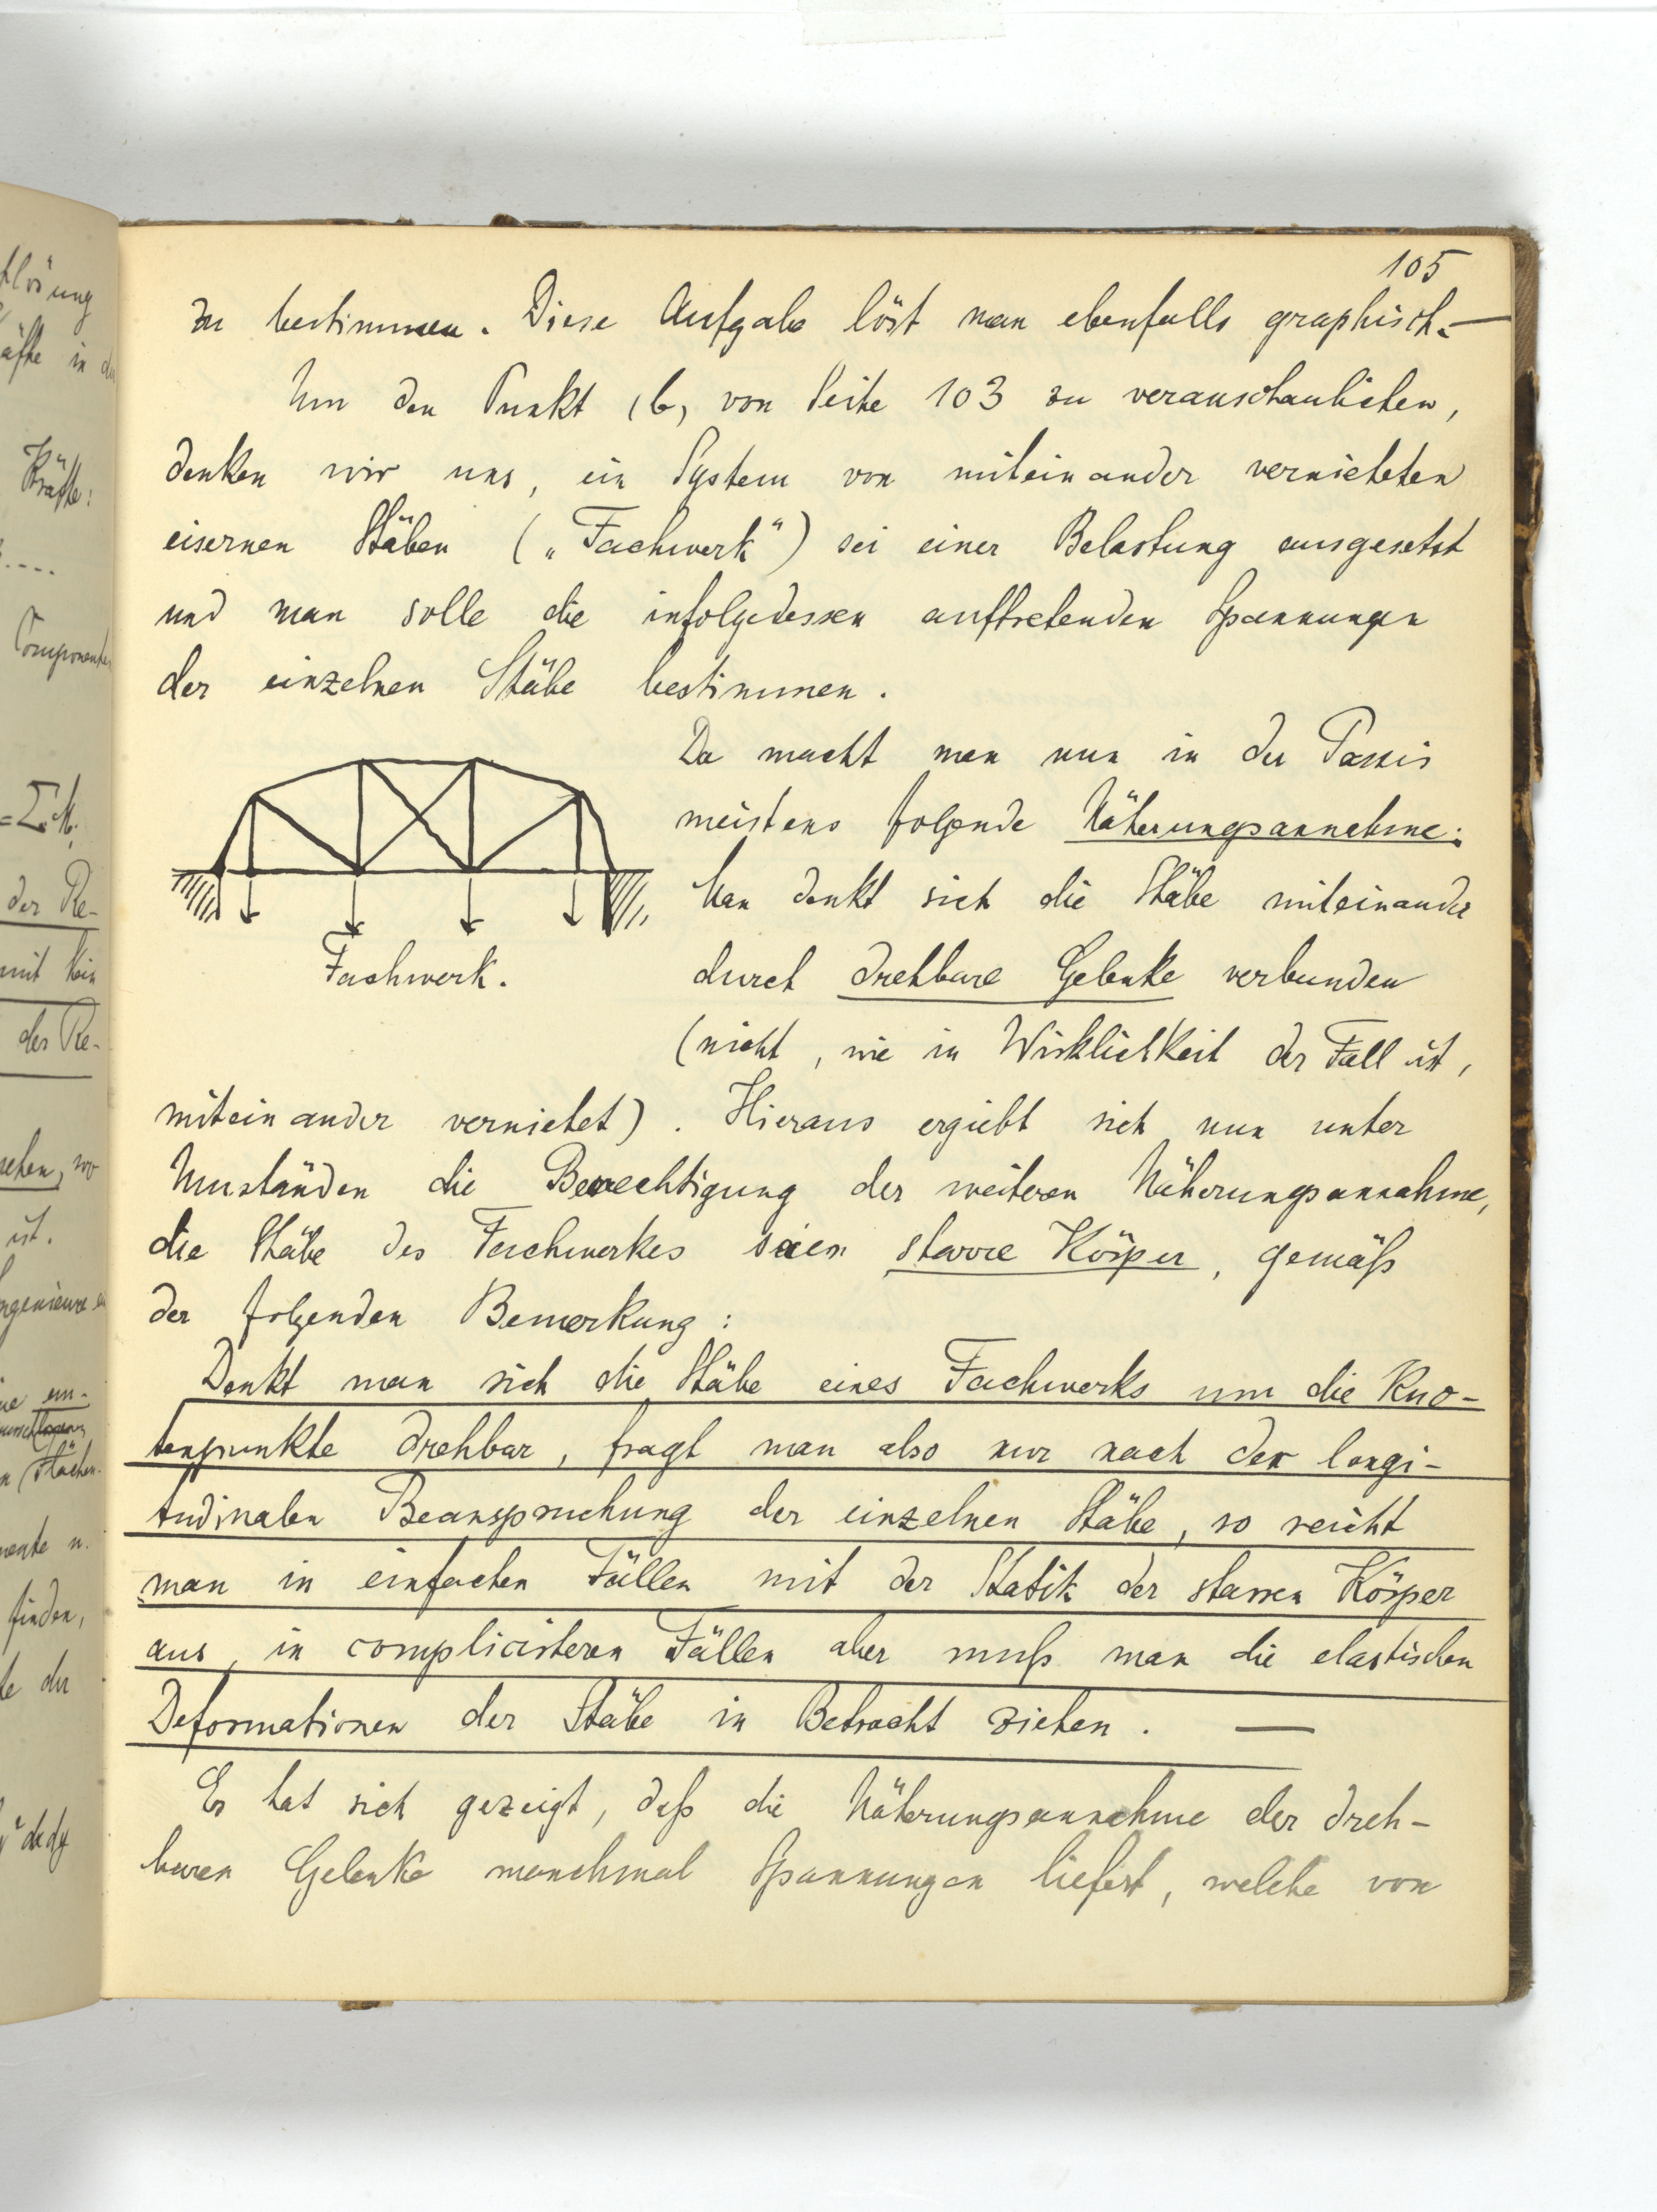 105
zu bestimmen. Diese Aufgabe löst man ebenfalls graphisch. —
Um den Punkt (b) von Seite 103 zu veranschaulichen,
denken wir uns, ein System von miteinander vernieteten
eisernen Stäben („Fachwerk“) sei einer Belastung ausgesetzt
und man solle die infolgedessen auftretenden Spannungen
der einzelnen Stäbe bestimmen.
Da macht man nun in der Praxis
meistens folgende Näherungsannahme:
Man denkt sich die Stäbe miteinander
Fachwerk.
durch drehbare Gelenke verbunden
(nicht, wie in Wirklichkeit der Fall ist,
miteinander vernietet). Hieraus ergiebt sich nun unter
Umständen die Berechtigung der weiteren Näherungsannahme,
die Stäbe des Fachwerkes seien starre Körper, gemäß
der folgenden Bemerkung:
Denkt man sich die Stäbe eines Fachwerks um die Kno-
tenpunkte drehbar, fragt man also nur nach der longi-
tudinalen Beanspruchung der einzelnen Stäbe, so reicht
man in einfachen Fällen mit der Statik der starren Körper
aus, in complicirteren Fällen aber muß man die elastischen
Deformationen der Stäbe in Betracht ziehen. —
Es hat sich gezeigt, daß die Näherungsannahme der dreh-
baren Gelenke manchmal Spannungen liefert, welche von